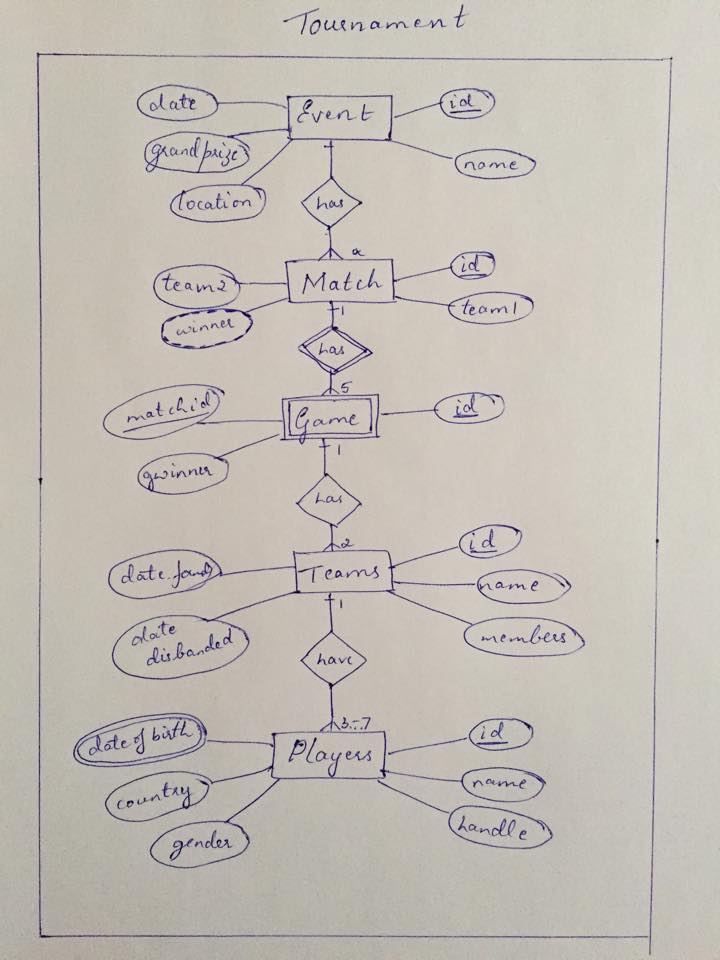 Tournament
date
Event
id
grand prize
name
location
has
α
team2
Match
id
winner
1
team1
has
5
matchid
Game
id
gwinner
1
has
2
id
date.found
Teams
name
date
disbanded
1
members
have
3-7
date of birth
Players
id
country
name
gender
handle